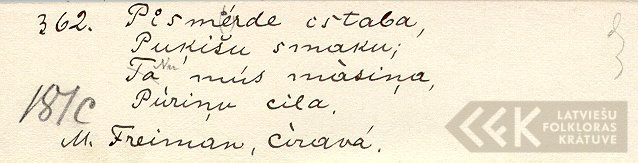 362. Piesmērde istaba,
Puķišu smaku;
Tā Nav mūs māsiņa,
Pūriņu cila.
18/c
M. Freiman, Cīravā.
LATVIEŠU
FOLKLORAS
KRĀTUVE